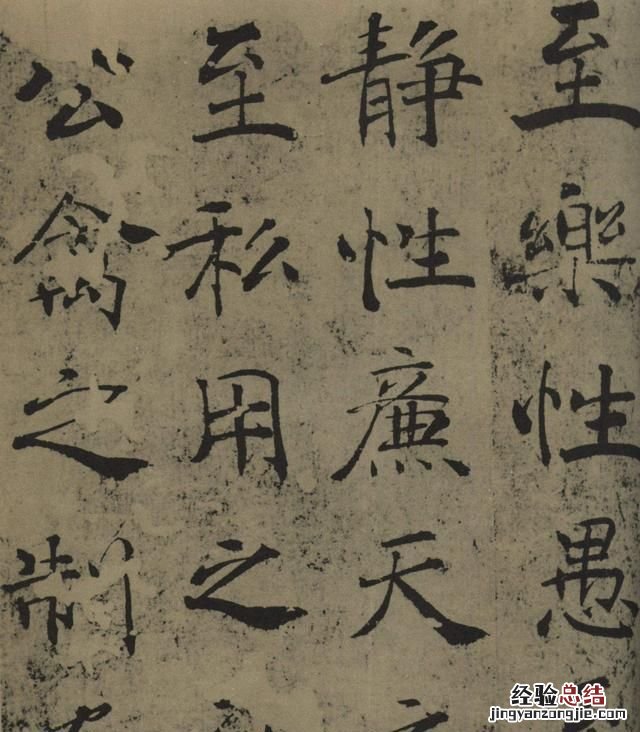 至樂性愚
靜性廉天
至私用之
公禽之制
经验总结
jingyanzongjie.com